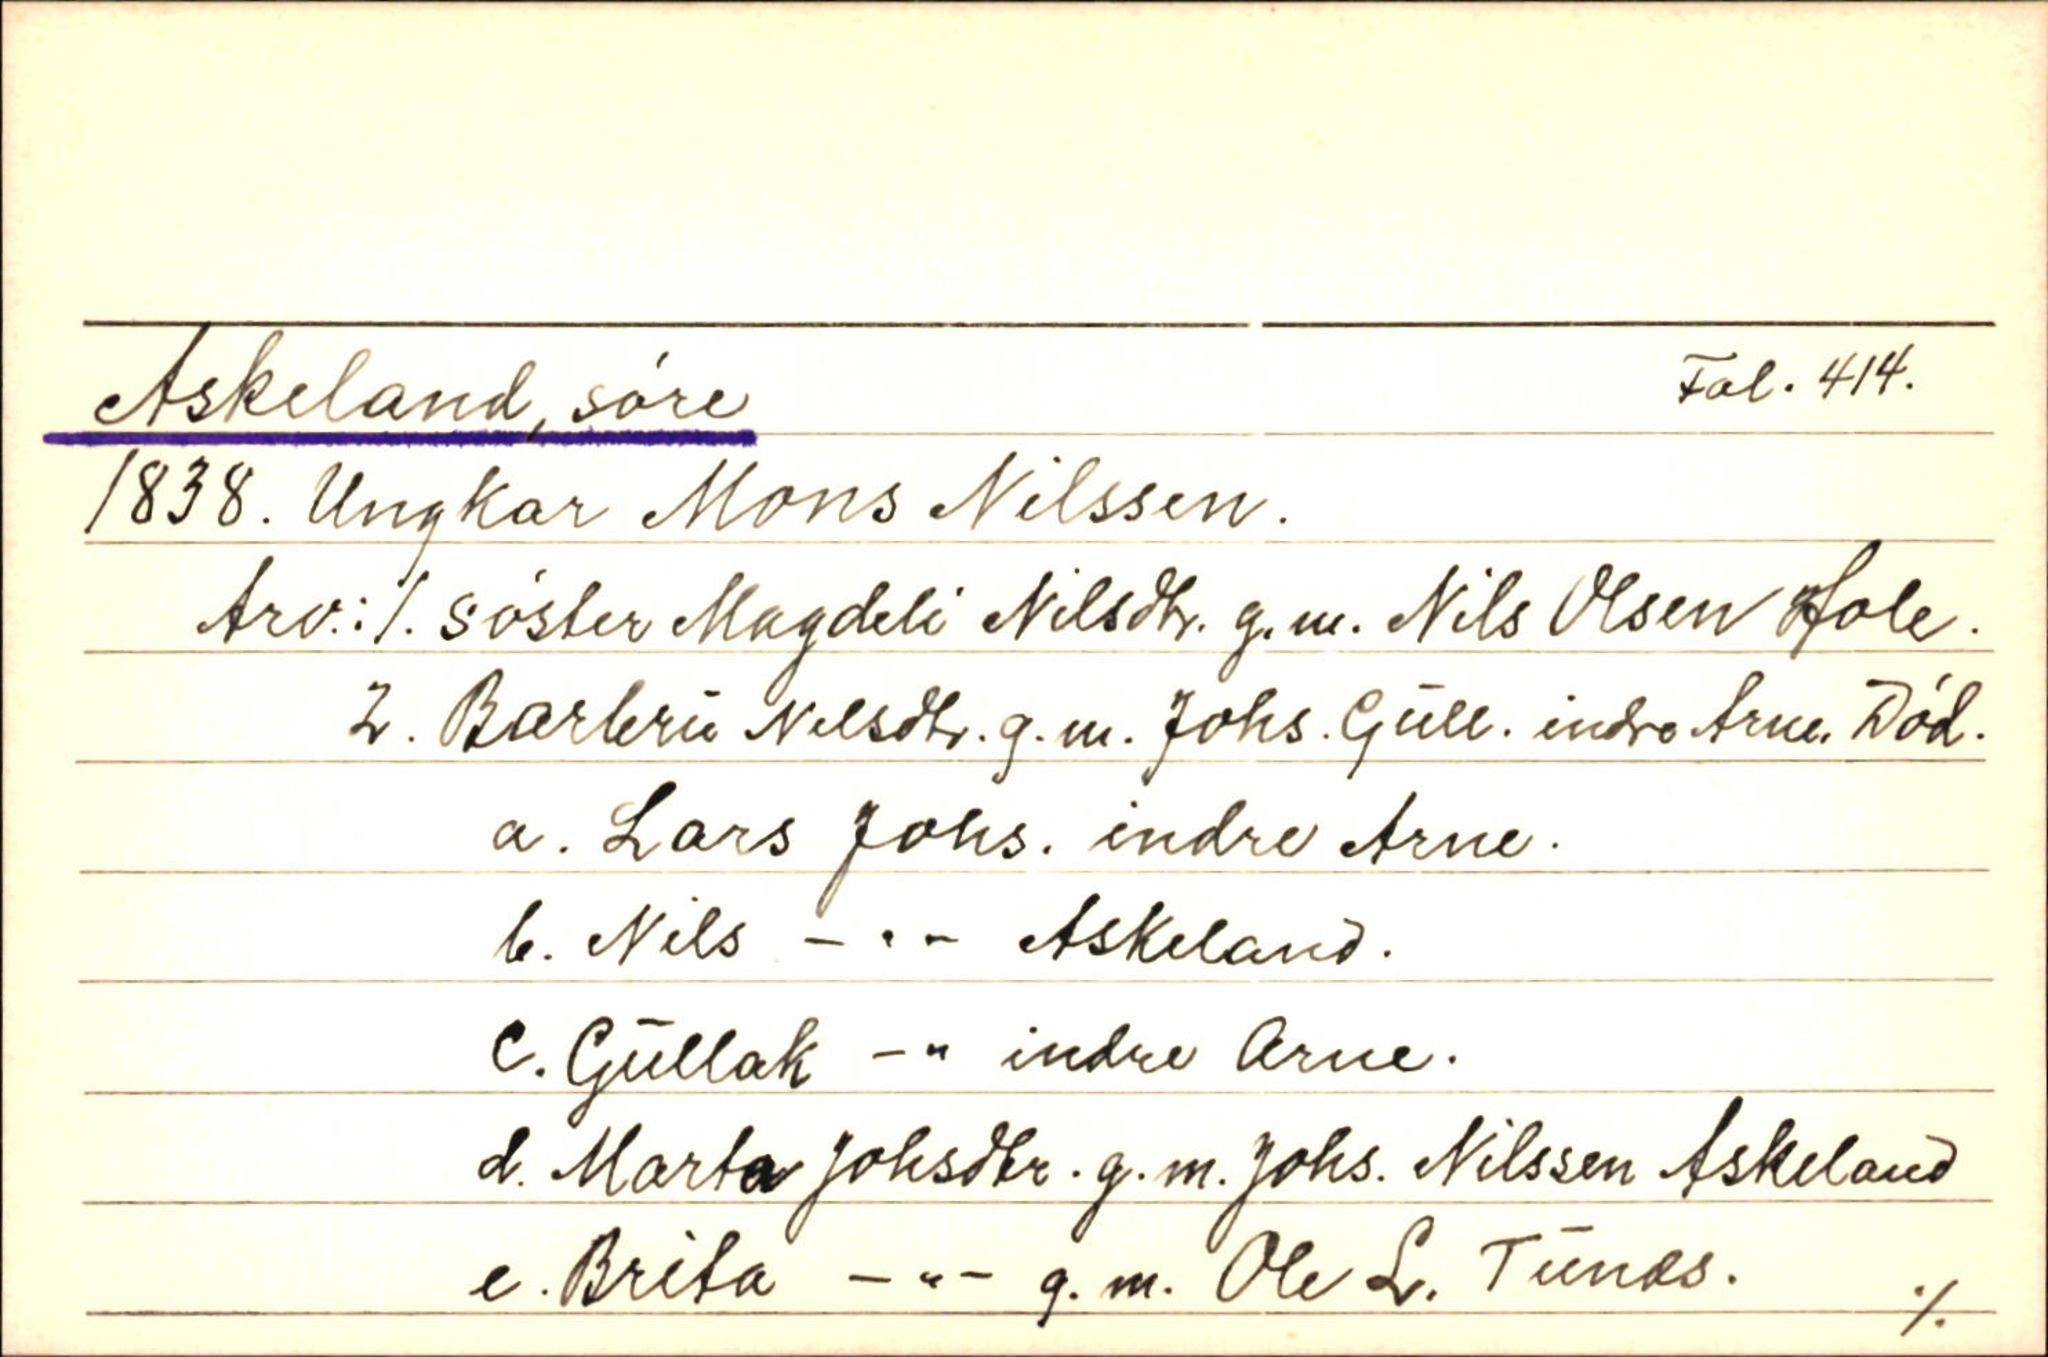 Askeland, söre Fol. 414.
1838. Ungkar Mons Nilssen.
Arv.: 1. söster Magdeli Nilsdtr. g.m. Nils Olsen Hole.
2. Barbru Nilsdtr. g.m. Johs. Gull. indre Arne. Död.
a. Lars Johs. indre Arne.
b. Nils -"- Askeland.
c. Gullak -" indre Arne.
d. Marta Johsdtr. g.m. Johs. Nilssen Askeland
e. Brita -"- g.m. Ole L. Tunes.
./.